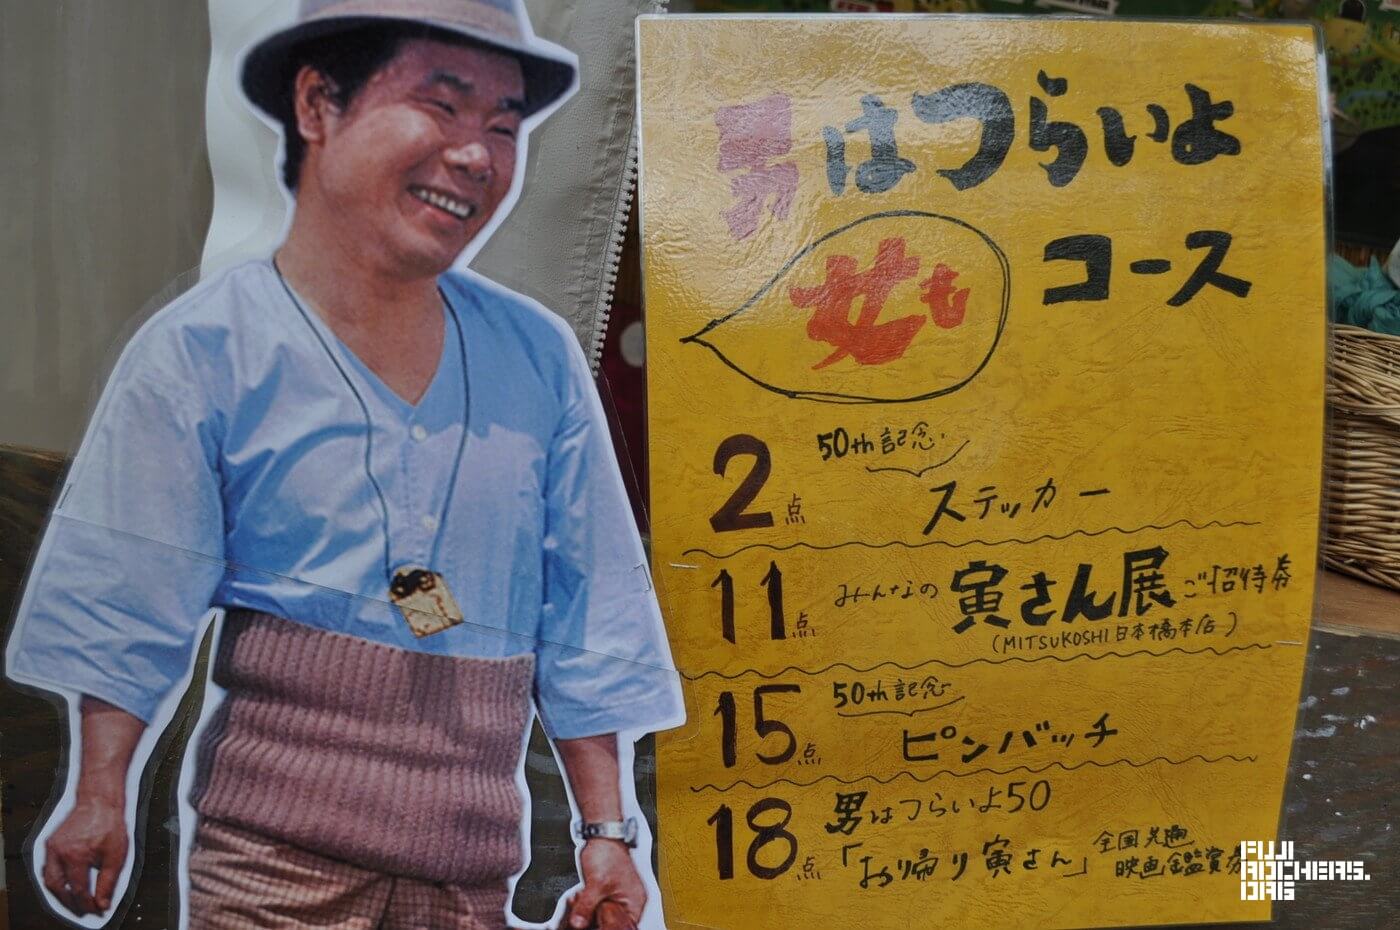 男はつらいよ
女も
コース
2点 50th記念 ステッカー
11点 みんなの 寅さん展 ご招待券
(MITSUKOSHI 日本橋本店)
15点 50th記念 ピンバッチ
18点 男はつらいよ50
「お帰り寅さん」 全国共通
映画鑑賞
FUJI
ROCKERS.
ORG